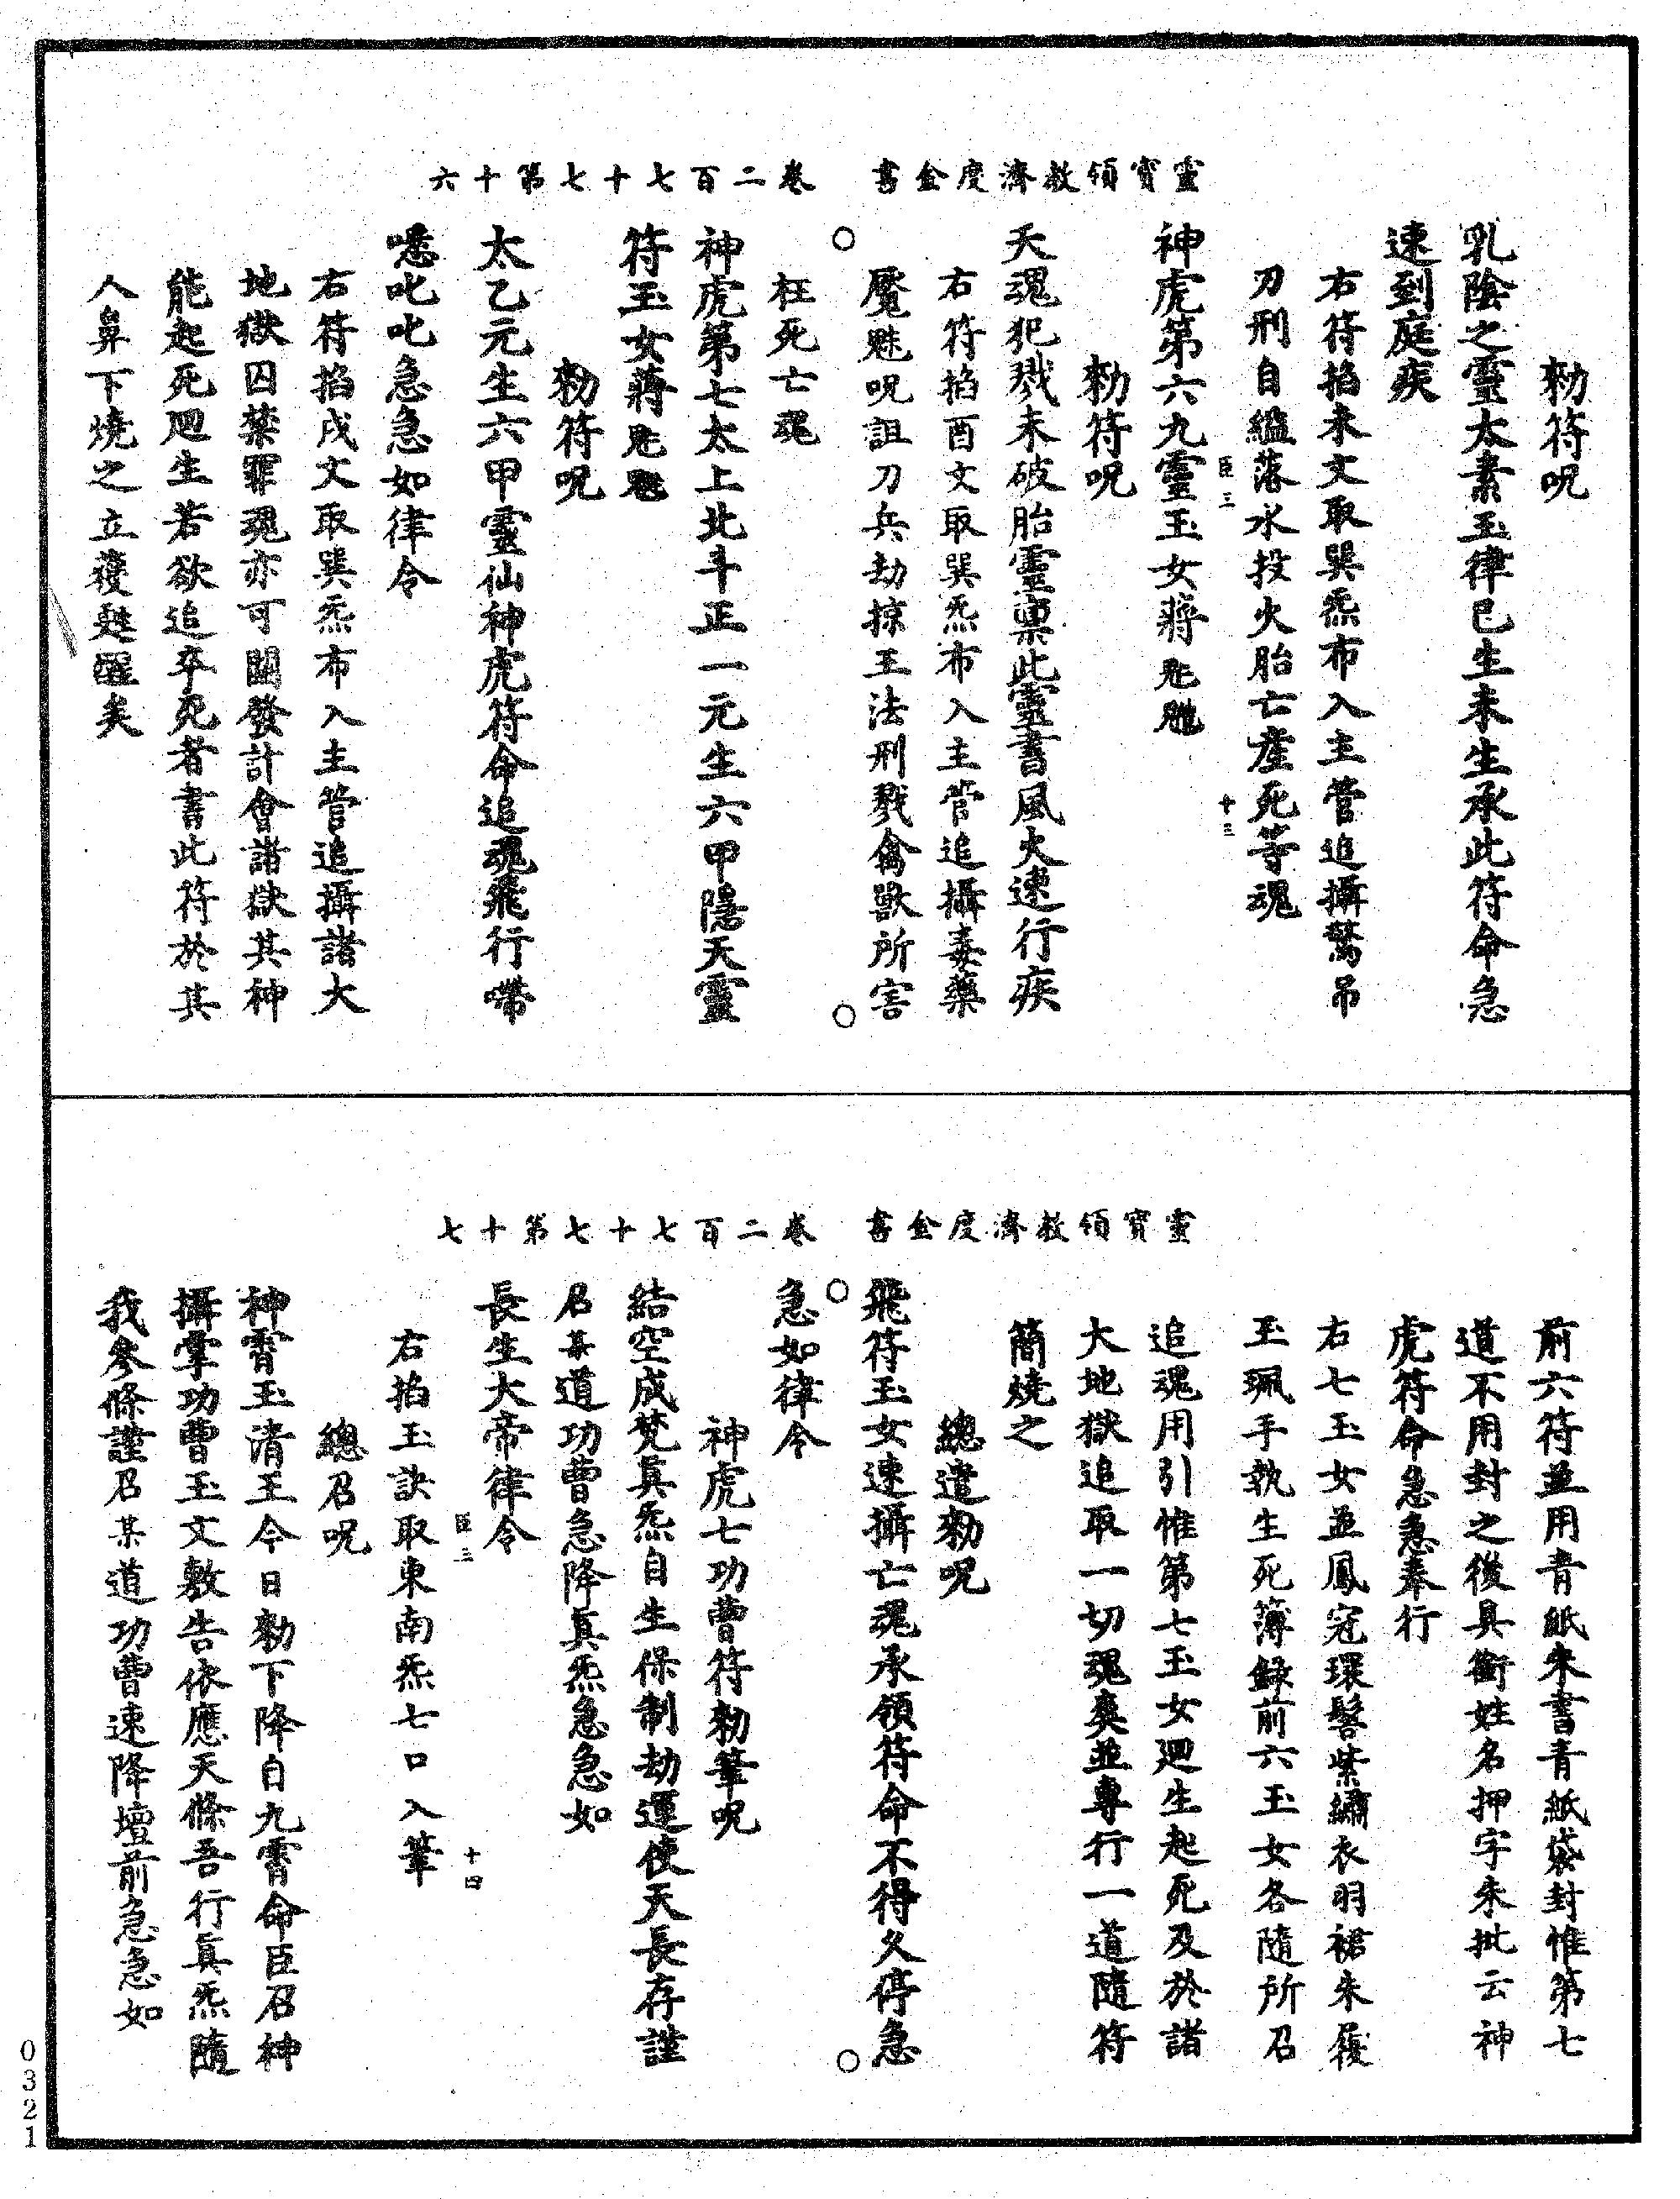 靈寶領教濟度金書　卷二百七十七第十六
勑符呪
乳陰之靈太素玉律已生未生承此符命急
速到庭疾
右符掐未文取巽炁布入主管追攝驚吊
刀刑自縊落水投火胎亡產死等魂
臣三　十三
神虎第六九靈玉女蔣
勑符呪
天魂犯戮未破胎靈稟此靈書風火速行疾
右符掐酉文取巽炁布入主管追攝毒藥
魘魅呪詛刀兵劫掠王法刑戮禽獸所害
○　○
枉死亡魂
神虎第七太上北斗正一元生六甲隱天靈
符玉女蔣
勑符呪
太乙元生六甲靈仙神虎符命追魂飛行啼
㗭叱叱急急如律令
右符掐戌文取巽炁布入主管追攝諸大
地獄囚禁罪魂亦可關發計會諸獄其神
能起死廻生若欲追卒死者書此符於其
人鼻下燒之立獲甦醒矣
靈寶領教濟度金書　卷二百七十七第十七
前六符並用青紙朱書青紙袋封惟第七
道不用封之後具銜姓名押字朱批云神
虎符命急急奉行
右七玉女並鳳冠環髻紫繡衣羽裙朱履
玉珮手執生死簿錄前六玉女各隨所召
追魂用引惟第七玉女廻生起死及於諸
大地獄追取一切魂爽並專行一道隨符
簡燒之
總遣勑呪
飛符玉女速攝亡魂承領符命不得久停急
○　○
急如律令
神虎七功曹符勑筆呪
結空成梵眞炁自生保制劫運使天長存謹
召某道功曹急降眞炁急急如
長生大帝律令
臣三　十四
右掐玉訣取東南炁七口入筆
總召呪
神霄玉清王今日勑下降自九霄命臣召神
攝掌功曹玉文敷告依應天條吾行眞炁隨
我參條謹召某道功曹速降壇前急急如
0321